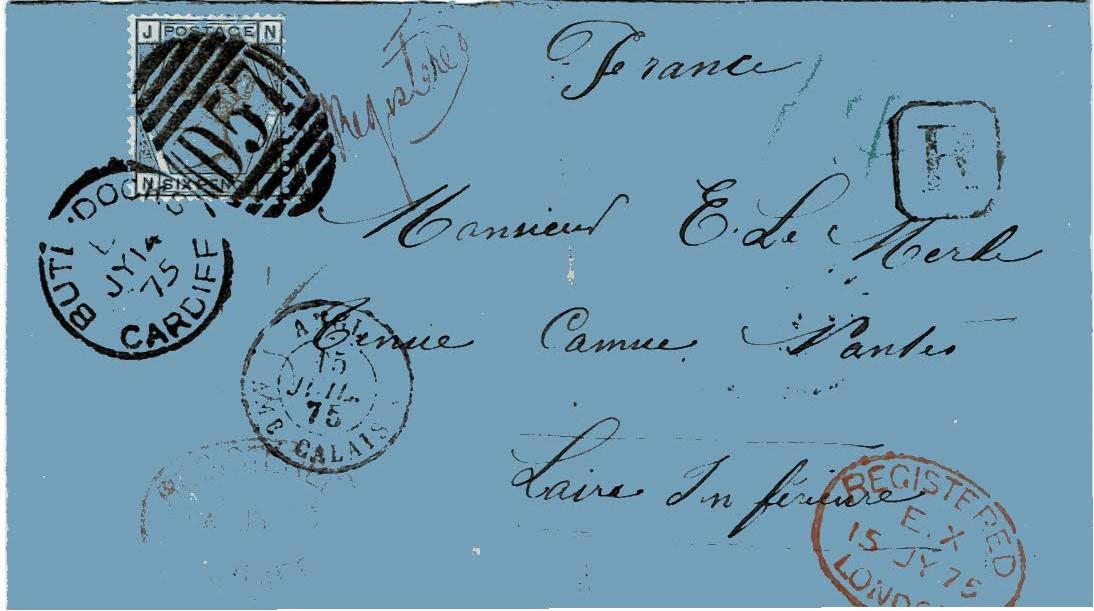 J POSTAGE N
D57
N SIX PEN
Registered
France
R
BUTE DOCKS
JY 14
75
CARDIFF
Monsieur E. Le Merle
Camue Nantes
Loire Inférieure
ANGL.
15
JUIL.
75
AMB CALAIS
REGISTERED
E.X
15 JY 75
LONDON